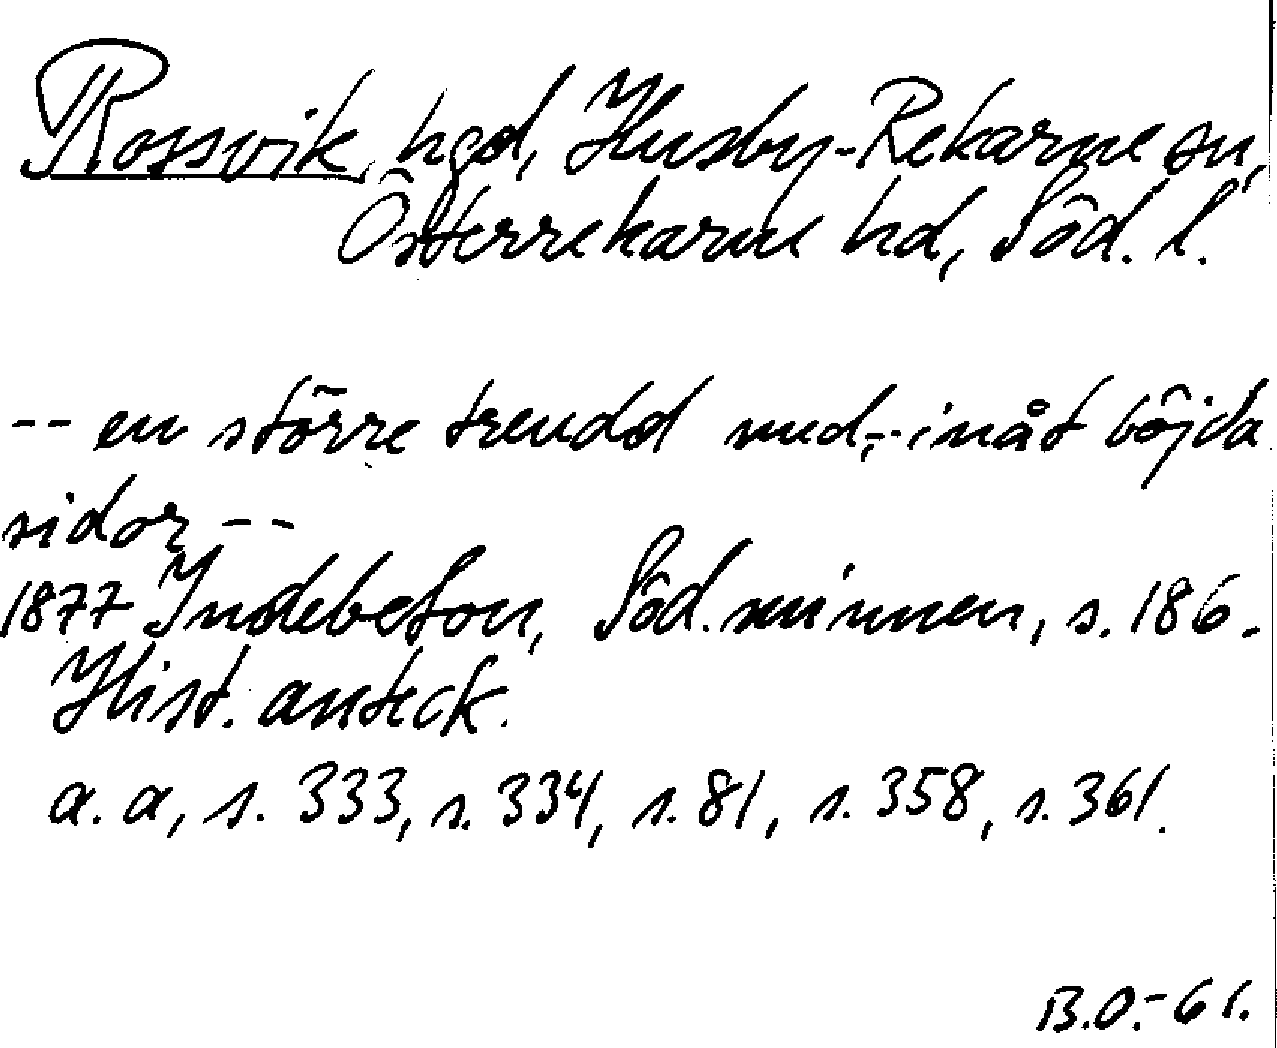 Rossvik, hgd, Husby-Rekarne sn,
Österrekarne hd, Söd. l.
-- en större treudd med,-- inåt böjda
sidor --
1877 Indebetou, Söd. minnen, s. 186.
Hist. anteck.
a. a, s. 333, s. 334, s. 81, s. 358, s. 361.
B.O.-61.